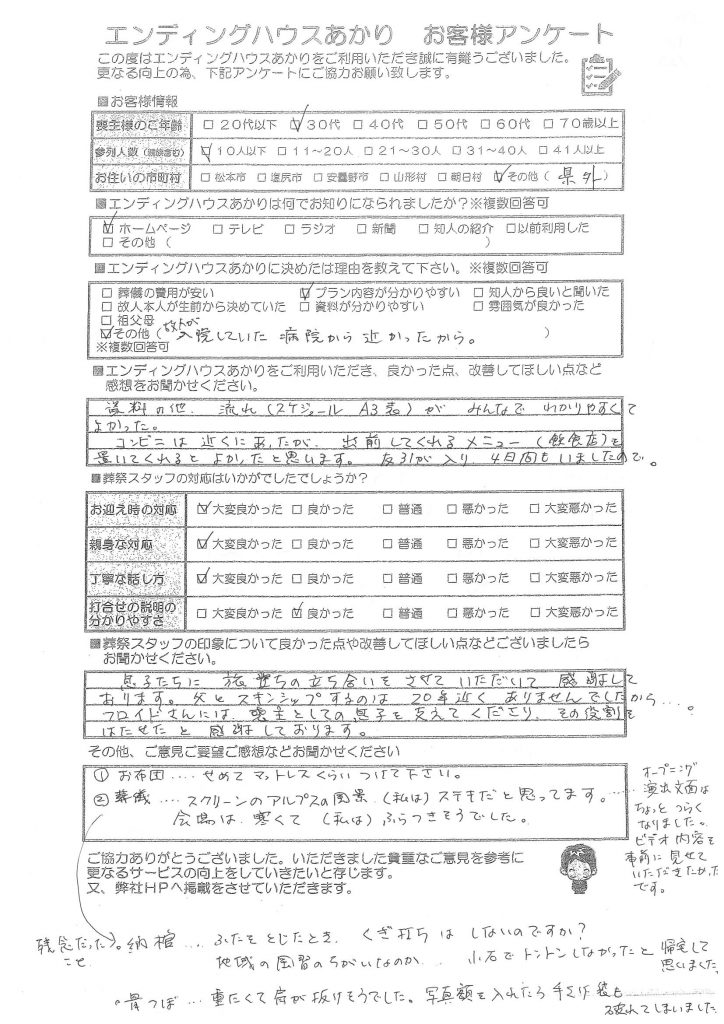 エンディングハウスあかり　お客様アンケート
この度はエンディングハウスあかりをご利用いただき誠に有難うございました。
更なる向上の為、下記アンケートにご協力お願い致します。
■お客様情報
喪主様のご年齢 □20代以下 ☑30代 □40代 □50代 □60代 □70歳以上
参列人数（親族含む） ☑10人以下 □11～20人 □21～30人 □31～40人 □41人以上
お住いの市町村 □松本市 □塩尻市 □安曇野市 □山形村 □朝日村 ☑その他（ 県外 ）
■エンディングハウスあかりは何でお知りになられましたか？※複数回答可
☑ホームページ □テレビ □ラジオ □新聞 □知人の紹介 □以前利用した
□その他（ ）
■エンディングハウスあかりに決めたは理由を教えて下さい。※複数回答可
□葬儀の費用が安い ☑プラン内容が分かりやすい □知人から良いと聞いた
□故人本人が生前から決めていた □資料が分かりやすい □雰囲気が良かった
□祖父母
☑その他（故人が入院していた 病院から 近かったから。 ）
※複数回答可
■エンディングハウスあかりをご利用いただき、良かった点、改善してほしい点など
感想をお聞かせください。
資料の他、流れ（スケジュール A3表）が みんなで わかりやすくて
よかった。
コンビニは 近くにあったが、出前してくれる メニュー（飲食店）を
置いてくれると よかったと思います。 友引が入り 4日間もいましたので。
■葬祭スタッフの対応はいかがでしたでしょうか？
お迎え時の対応 ☑大変良かった □良かった □普通 □悪かった □大変悪かった
親身な対応 ☑大変良かった □良かった □普通 □悪かった □大変悪かった
丁寧な話し方 ☑大変良かった □良かった □普通 □悪かった □大変悪かった
打合せの説明の
分かりやすさ □大変良かった ☑良かった □普通 □悪かった □大変悪かった
■葬祭スタッフの印象について良かった点や改善してほしい点などございましたら
お聞かせください。
息子たちに 旅立ちの立ち合いを させていただいて 感謝して
おります。父とスキンシップするのは 20年近く ありませんでしたから…。
フロイドさんには、喪主としての息子を支えてくださり、その役割を
はたせたと 感謝しております。
その他、ご意見ご要望ご感想などお聞かせください
① お布団 ‥‥ せめて マットレスくらい つけて下さい。
② 葬儀 ‥‥ スクリーンのアルプスの風景 （私は）ステキだと思ってます。
会場は 寒くて （私は）ふらつきそうでした。
オープニング
演出文面は
ちょっと つらく
なりました。
ビデオ内容を
事前に見せて
いただきたかった
です。
ご協力ありがとうございました。いただきました貴重なご意見を参考に
更なるサービスの向上をしていきたいと存じます。
又、弊社HPへ掲載をさせていただきます。
残念だった
こと
納棺 … ふたを とじたとき、くぎ打ちは しないのですか？
地域の風習のちがいなのか… 小石で トントンしなかったと 帰宅して
思いました
骨つぼ … 重たくて 肩が抜けそうでした。写真額を入れたら 手さげ袋も
破れてしまいました